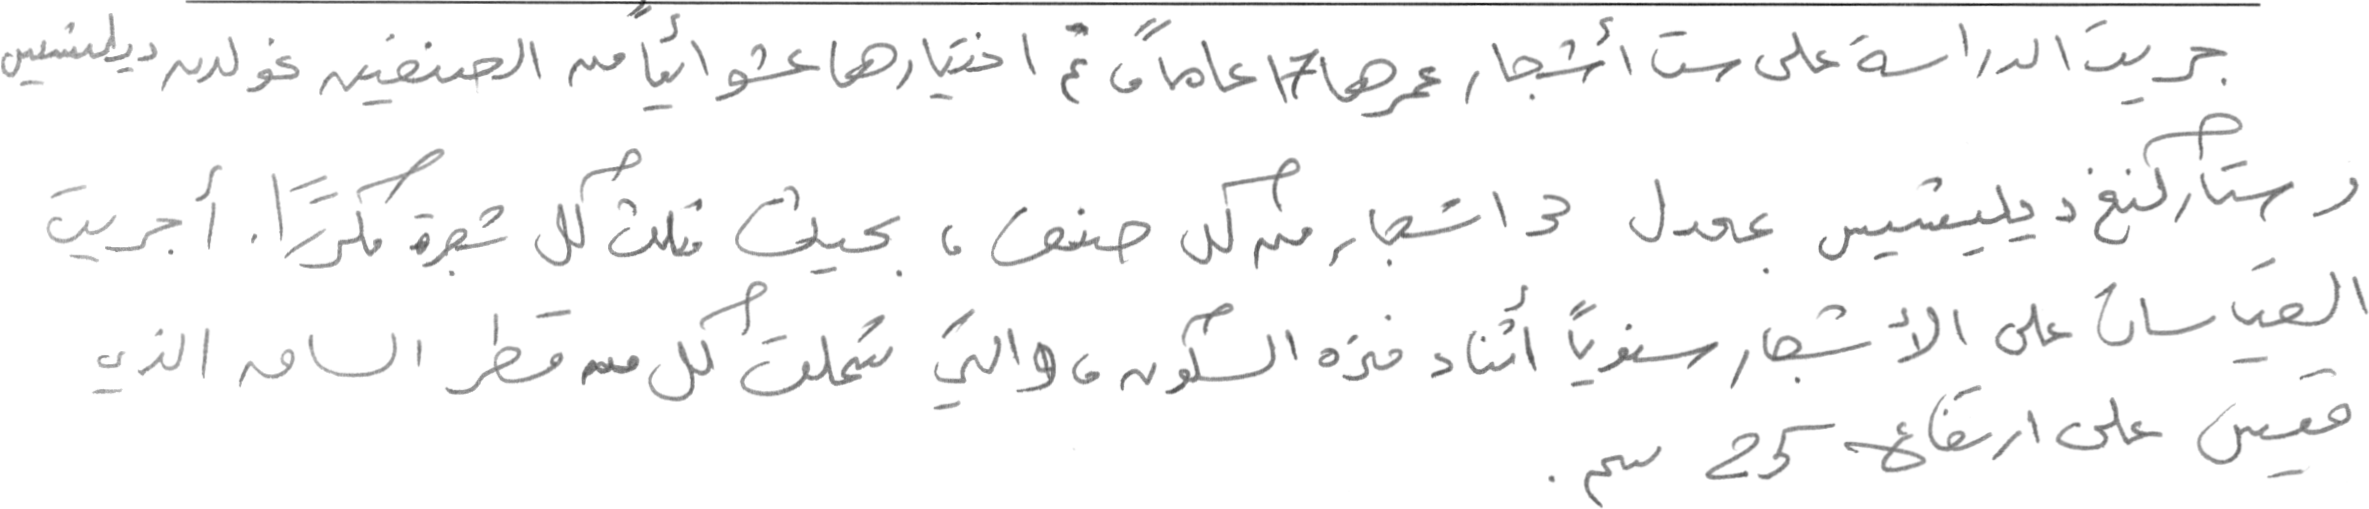 جريت الدراسة على ست أشجار عمرها 17 عاماً، تم اختيارها عشوائياً من الصنفين غولدن ديليشيس
وستاركنغ ديليشيس بمعدل 3 اشجار من كل صنف، بحيث مثلت كل شجرة مكرراً. أجريت
القياسات على الأشجار سنوياً أثناء فترة السكون، والتي شملت كل من قطر الساق الذي
قيس على ارتفاع 25 سم.